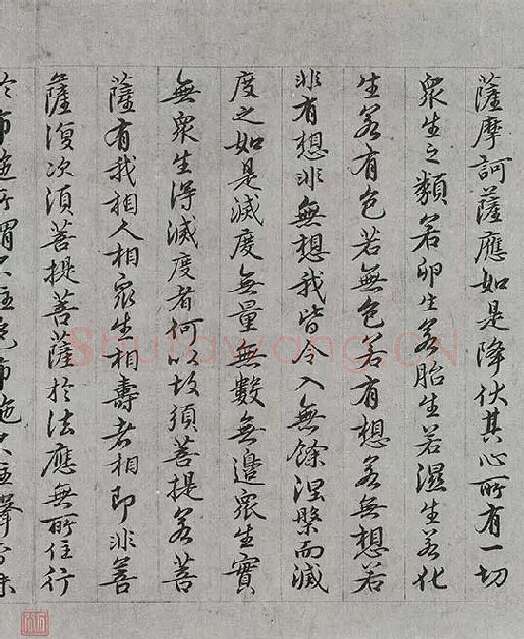 薩摩訶薩應如是降伏其心所有一切
衆生之類若卵生若胎生若濕生若化
生若有色若無色若有想若無想若
非有想非無想我皆令入無餘涅槃而滅
度之如是滅度無量無數無邊衆生實
無衆生得滅度者何以故須菩提若菩
薩有我相人相衆生相壽者相即非菩
薩復次須菩提菩薩於法應無所住行
於布施所謂不住色布施不住聲香味
Shufawang.CN